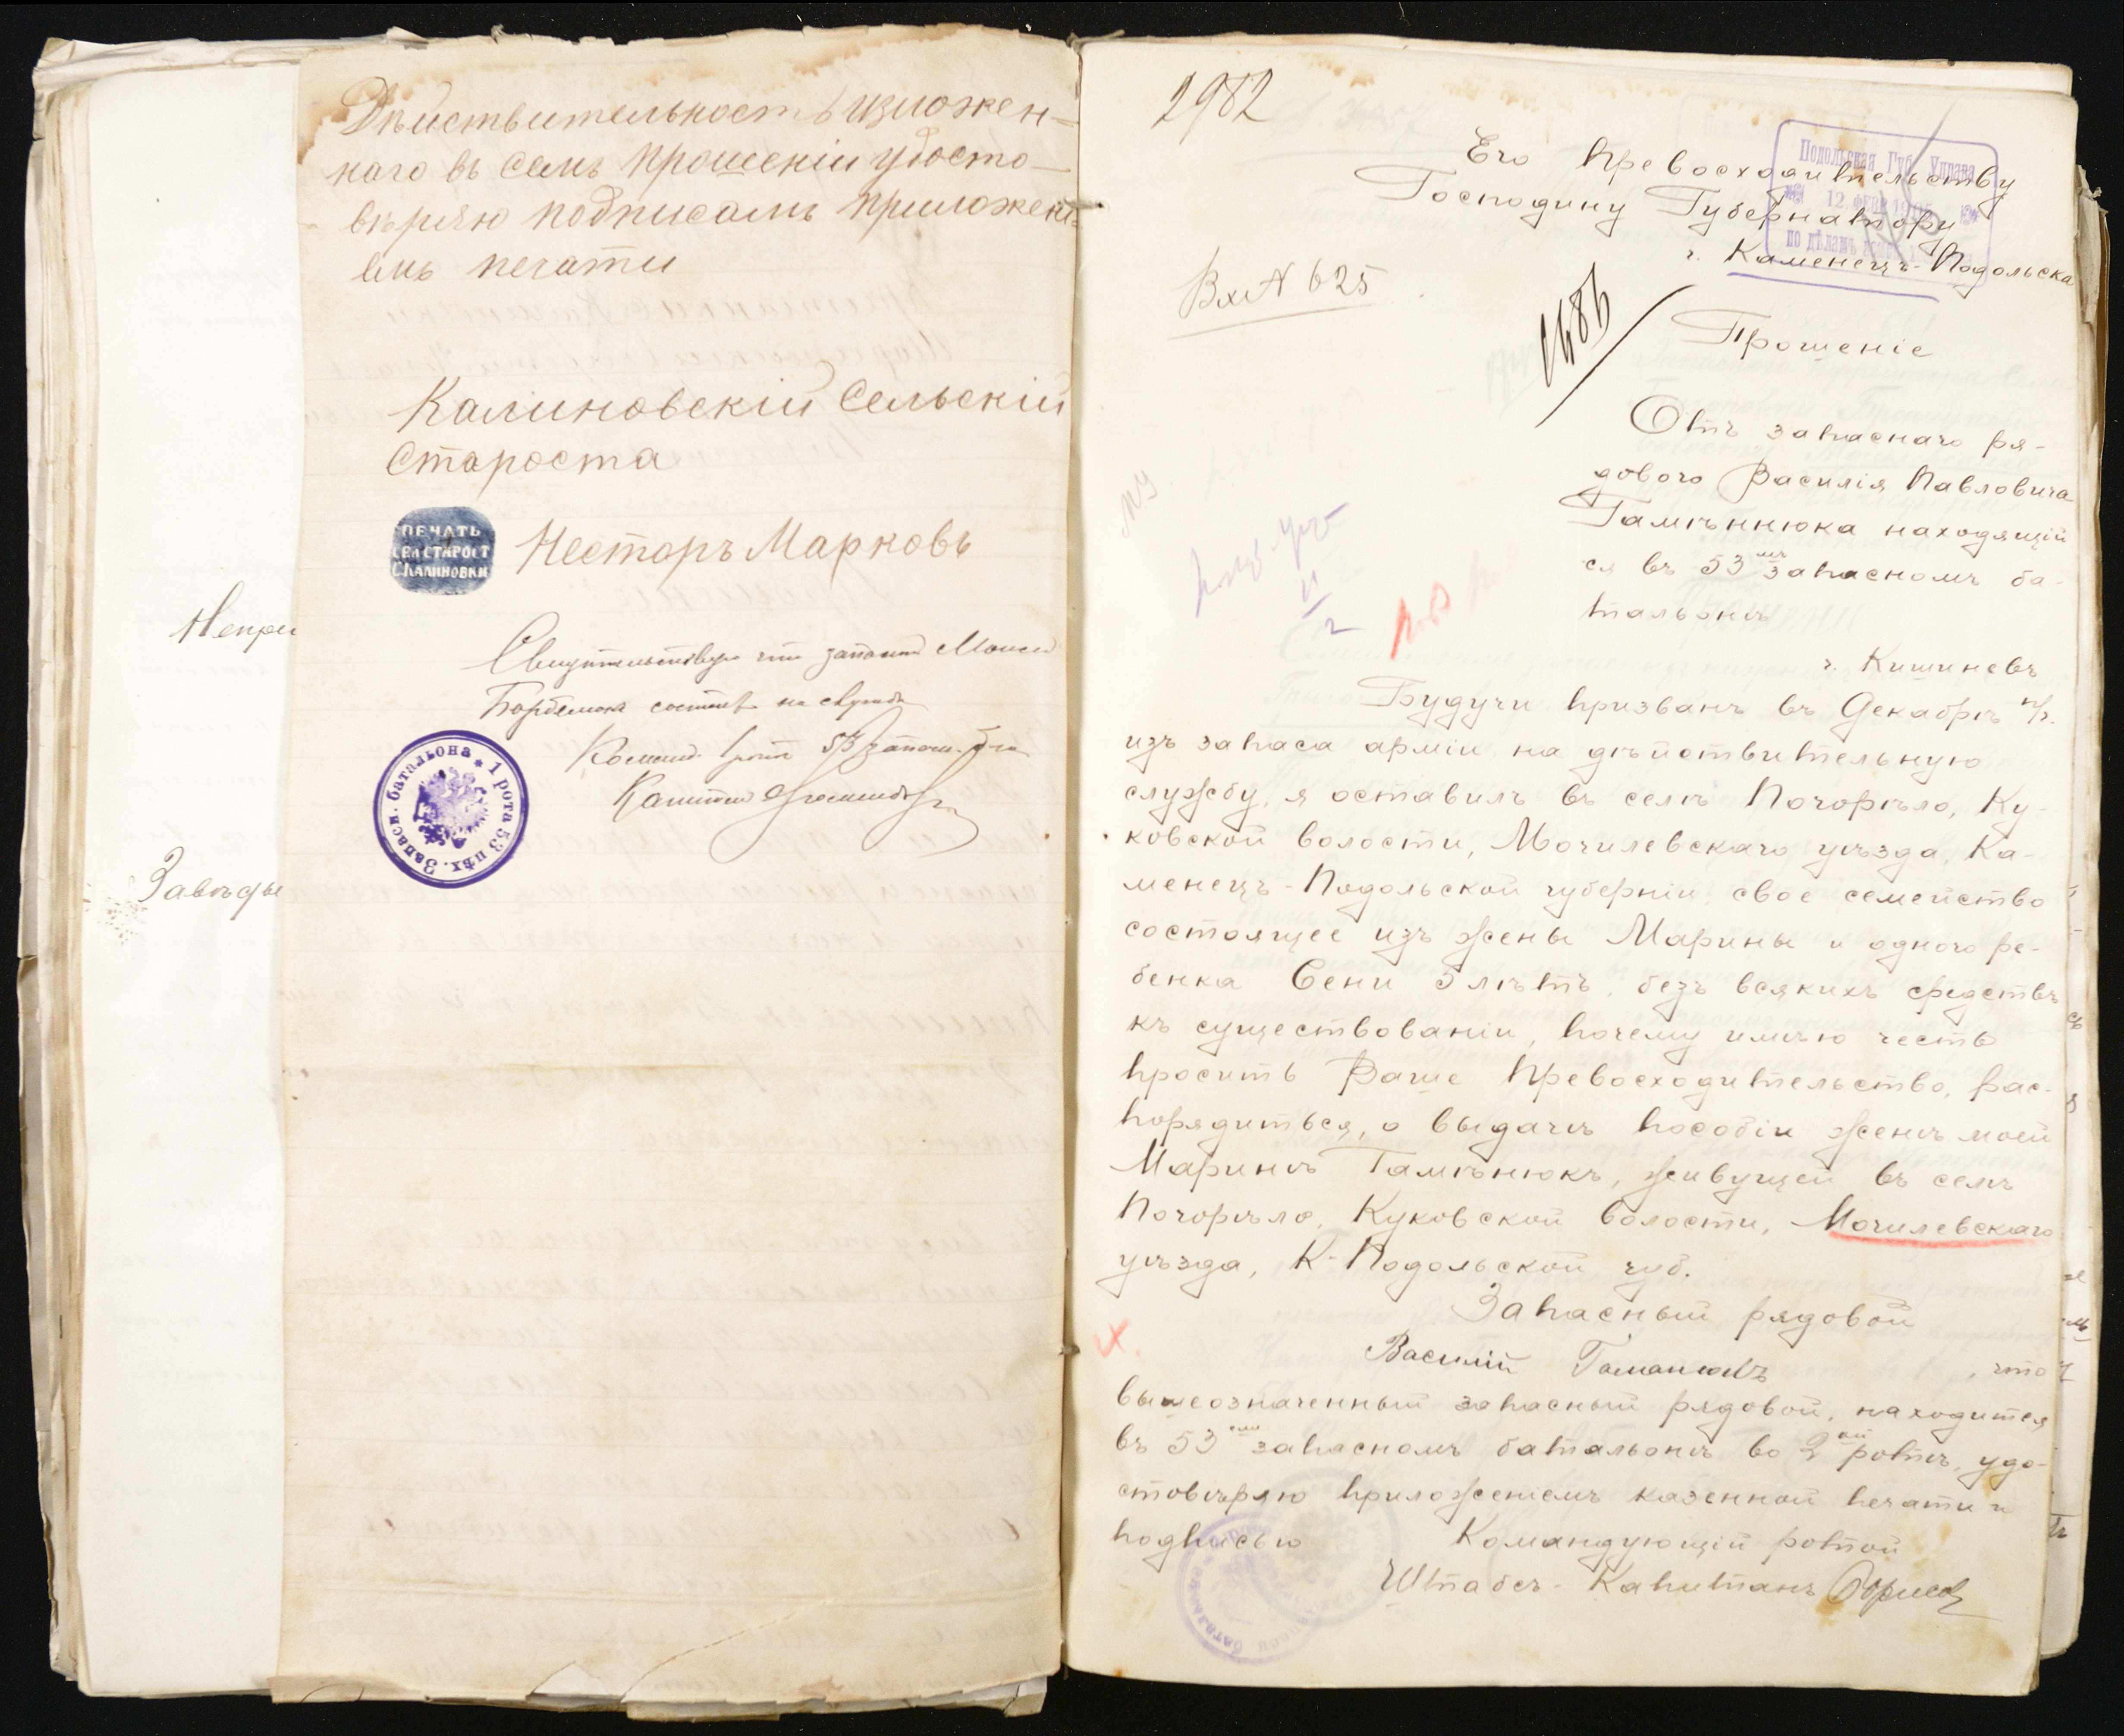 Дѣйствительность изложен-
наго въ семъ прошеніи удосто-
вѣряю подписомъ приложені-
емъ печати
Калиновскій Сельскій
Староста
ПЕЧАТЬ
СЕЛ СТАРОСТ
С КАЛИНОВКИ
Несторъ Марковъ
Свидѣтельствую что запасной Моисей
состоитъ на службѣ
Команд. 1 роты 53 запасн. б-на
Капитанъ
1 рота 53 пѣх. Запасн. батальона
Непри
Завѣды
2982
Его Превосходительству
Господину Губернатору
г. Каменецъ-Подольска
Подольская Губ. Управа
12
по дѣламъ
Вх № 625
1486
Прошеніе
Отъ запаснаго ря-
дового Василія Павловича
Гамѣннюка находящій
ся въ 53мъ запасномъ ба-
тальонѣ
г. Кишиневъ
Будучи призванъ въ Декабрѣ
изъ запаса арміи на дѣйствительную
службу, я оставилъ въ селѣ Погорѣло, Ку-
ковской волости, Могилевскаго уѣзда, Ка-
менецъ-Подольской губерніи, свое семейство
состоящее изъ жены Марины и одного ре-
бенка Сени 3 лѣтъ, безъ всякихъ средствъ
къ существованіи, почему имѣю честь
просить Ваше Превосходительство, рас-
порядиться, о выдачѣ пособіи женѣ моей
Маринѣ Гамѣнюкъ, живущей въ селѣ
Погорѣло, Куковской волости, Могилевскаго
уѣзда, К-Подольской губ.
Запасный рядовой
Василій Гаманюкъ , что
вышеозначенный запасный рядовой, находится
въ 53емъ запасномъ батальонѣ во 2ой ротѣ, удо-
стовѣряю приложеніемъ казенной печати и
подписью Командующій ротой
Штабсъ-Капитанъ